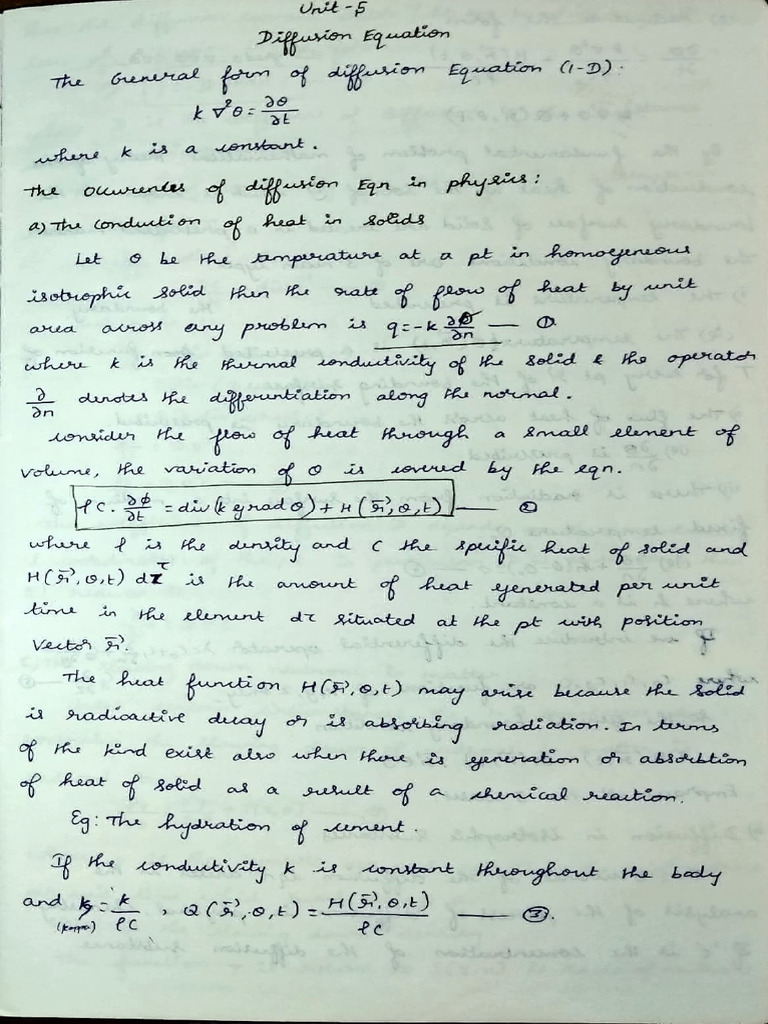 Unit - 5
Diffusion Equation
The General form of diffusion Equation (1-D):
k ∇²θ = ∂θ/∂t
where k is a constant.
The occurences of diffusion Eqn in physics:
a) The conduction of heat in solids
Let θ be the temperature at a pt in homogeneous
isotrophic solid then the rate of flow of heat by unit
area across any problem is q = -k ∂θ/∂n — ①
where k is the thermal conductivity of the solid & the operator
∂/∂n denotes the differentiation along the normal.
consider the flow of heat through a small element of
volume, the variation of θ is covered by the eqn.
ρc. ∂ϕ/∂t = div(k grad θ) + H(r⃗, θ, t) — ②
where ρ is the density and C the specific heat of solid and
H(r⃗, θ, t) dτ is the amount of heat generated per unit
time in the element dτ situated at the pt with position
vector r⃗.
The heat function H(r⃗, θ, t) may arise because the solid
is radioactive decay or is absorbing radiation. In terms
of the kind exist also when there is generation or absorbtion
of heat of solid as a result of a chemical reaction.
Eg: The hydration of cement.
If the conductivity k is constant throughout the body
and k = k/ρC , Q(r⃗, θ, t) = H(r⃗, θ, t)/ρC — ③.
(kappa)